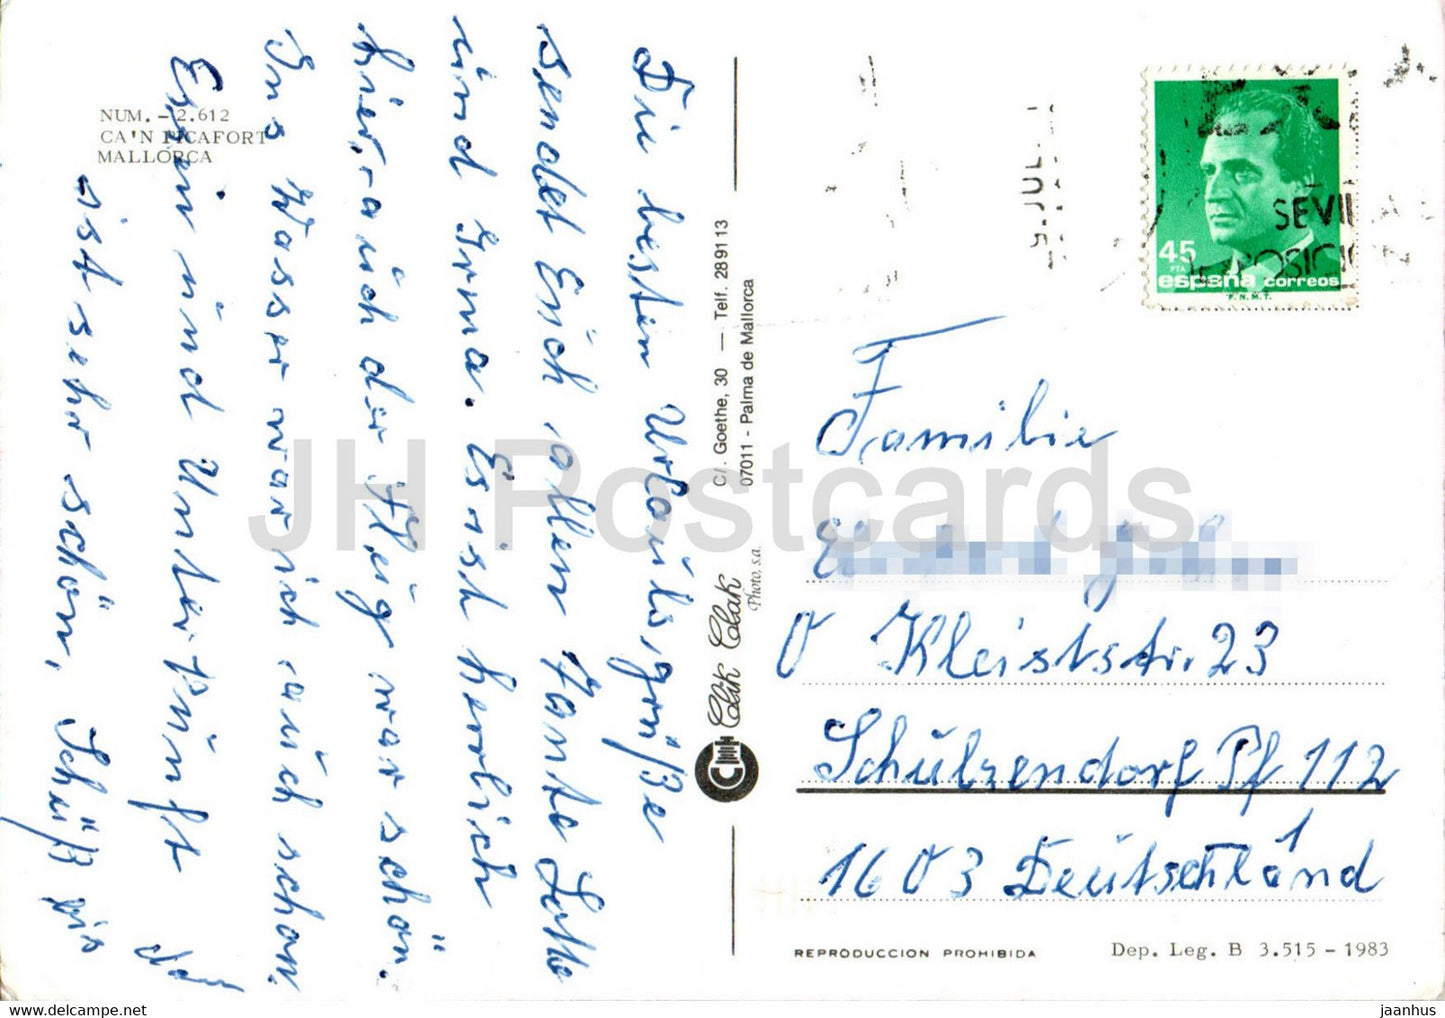 NUM. - 2.612
CA'N PICAFORT
MALLORCA
Die besten Urlaubsgrüße
sendet Euch allen Tante Lotte
und Irma. Es ist herrlich
hier, auch der Flug war schön.
Ins Wasser war ich auch schon.
Essen und Unterkünft
ist sehr schön,
C/. Goethe, 30 — Telf. 28 91 13
07011 - Palma de Mallorca
Clik Clak
Photo, s.a.
45
PTA
españa correos
F.N.M.T.
JUL.
SEVILLA
Familie
O Kleiststr. 23
Schülzendorf Pf 112
1603 Deutschland
REPRODUCCION PROHIBIDA
Dep. Leg. B 3.515 - 1983
JH Postcards
https://www.delcampe.net
jaanhus